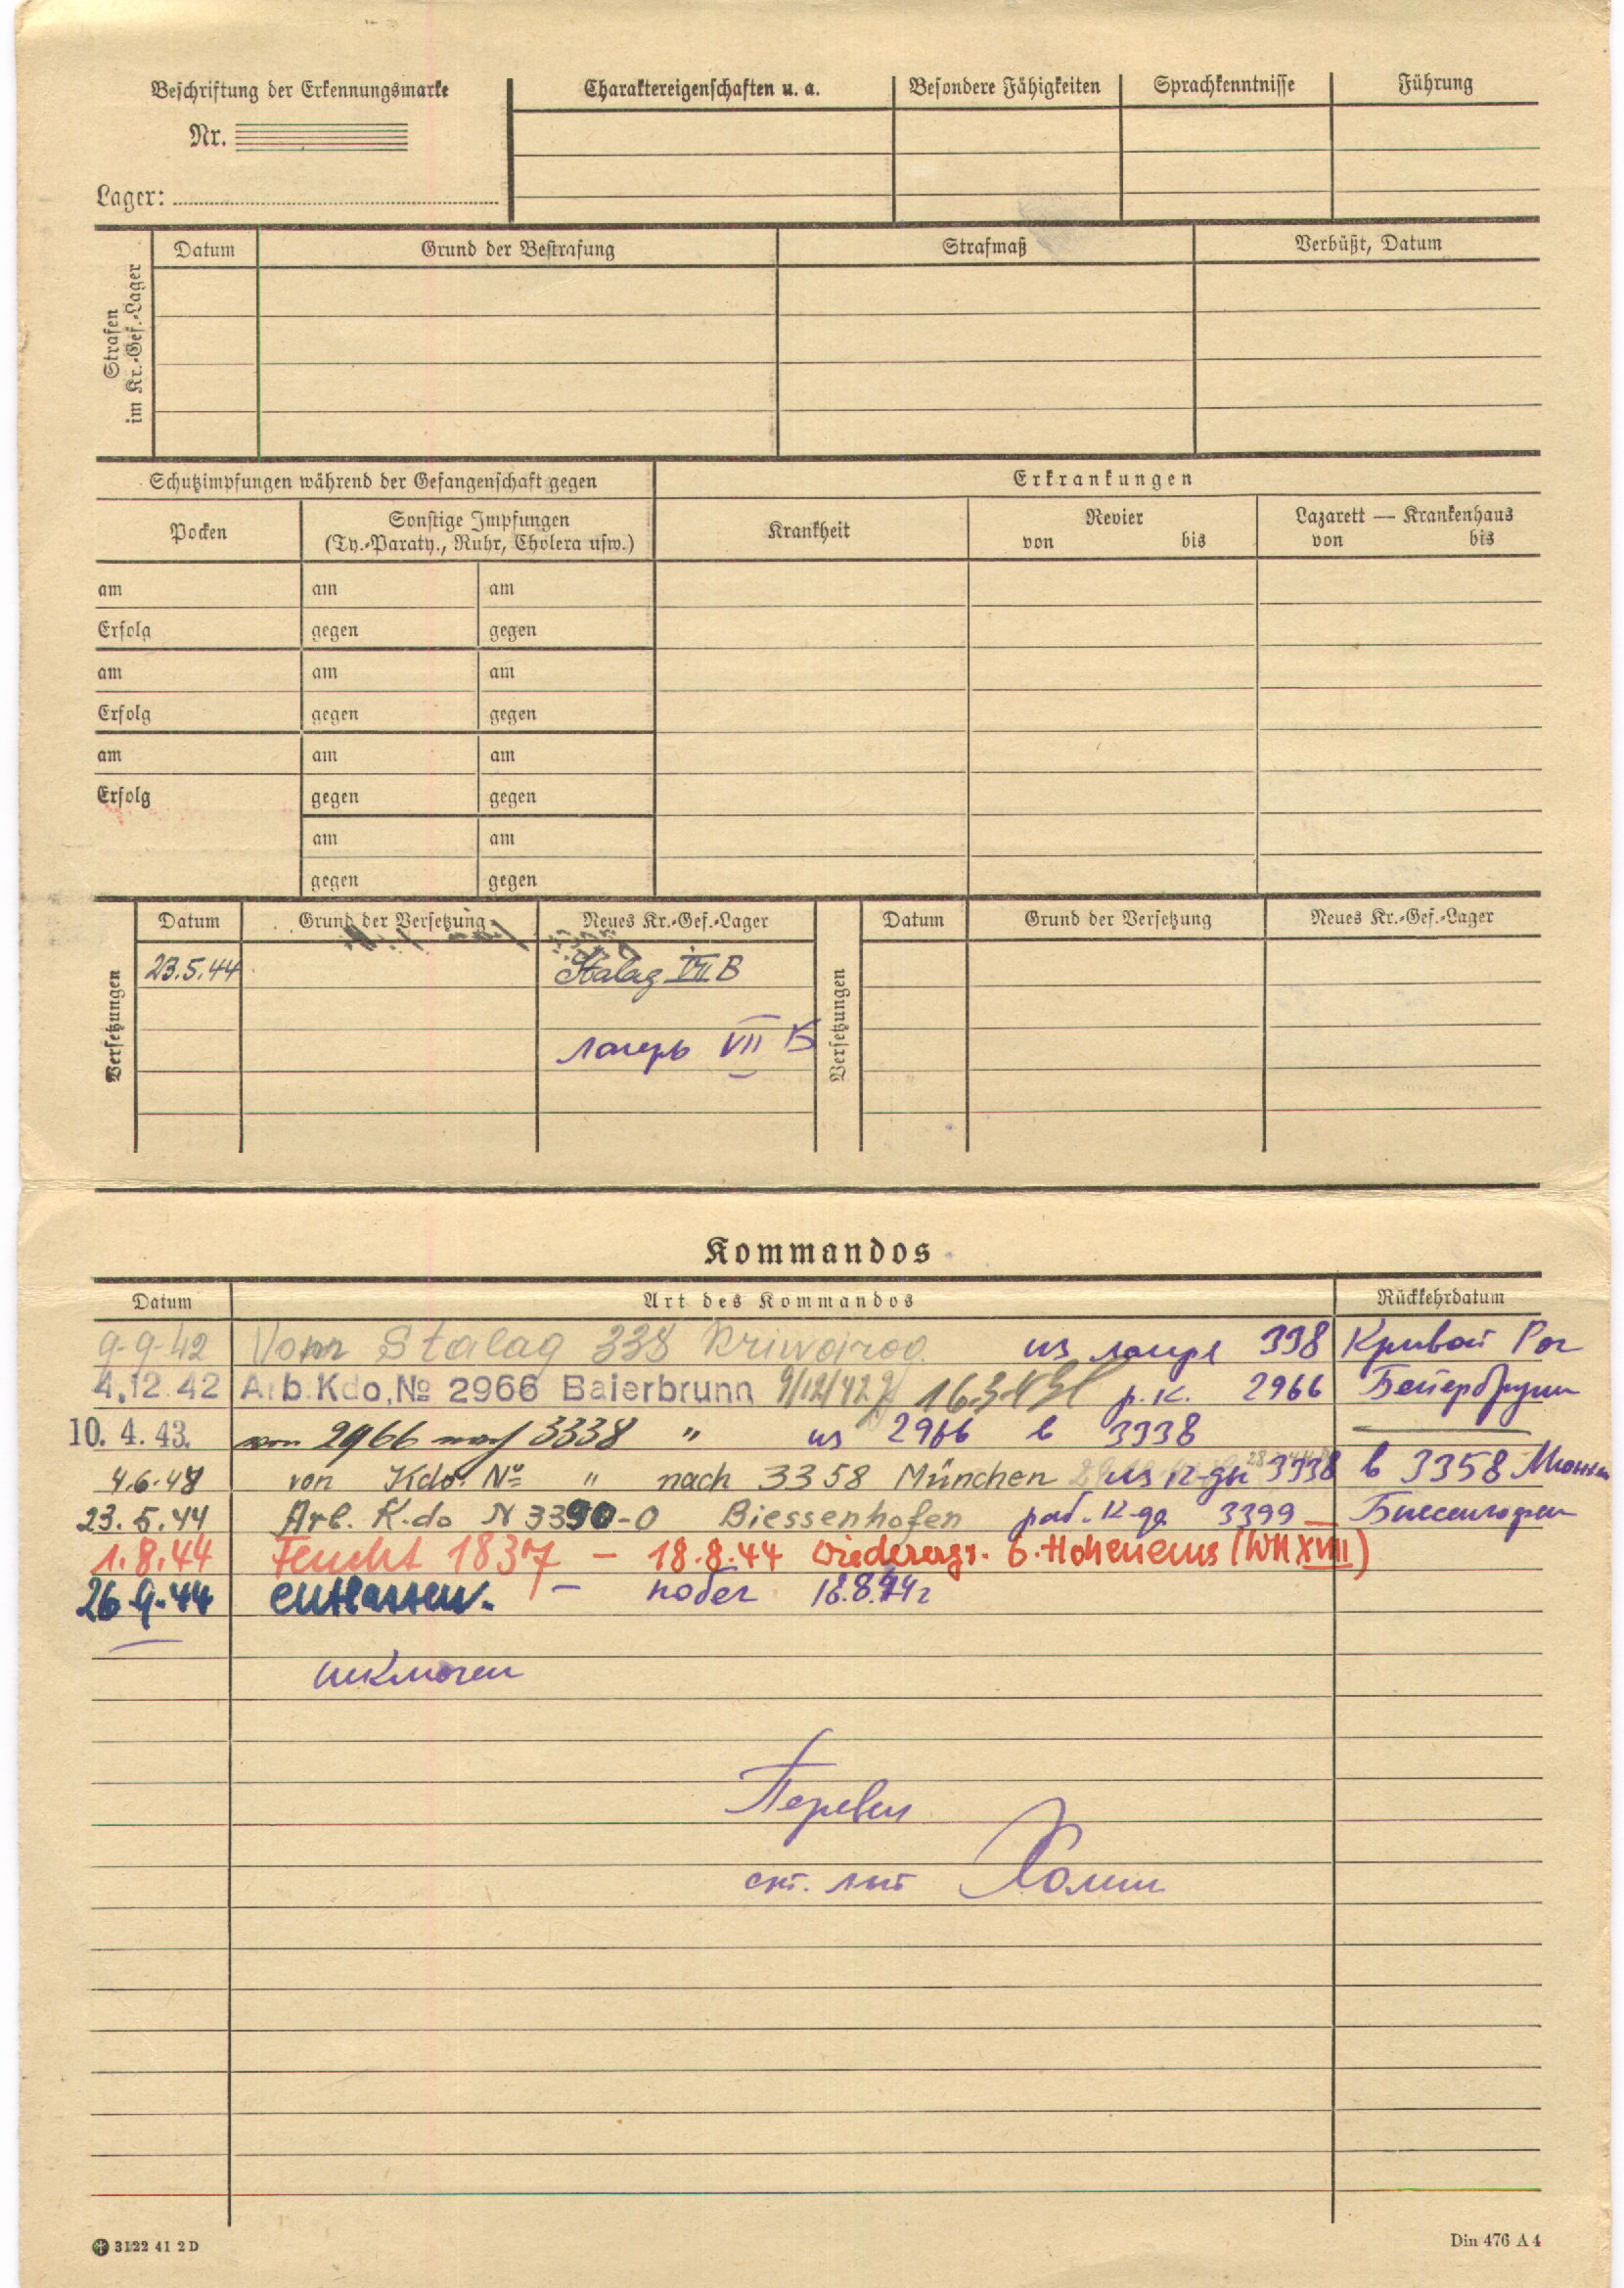 Beschriftung der Erkennungsmarke
Nr.
Lager:
Charaktereigenschaften u. a. Besondere Fähigkeiten Sprachkenntnisse Führung
Strafen im Kr.-Gef.-Lager
Datum Grund der Bestrafung Strafmaß Verbüßt, Datum
Schutzimpfungen während der Gefangenschaft gegen
Erkrankungen
Pocken
Sonstige Impfungen
(Ty.-Paraty., Ruhr, Cholera usw.)
Krankheit
Revier
von bis
Lazarett — Krankenhaus
von bis
am am am
Erfolg gegen gegen
am am am
Erfolg gegen gegen
am am am
Erfolg gegen gegen
am am
gegen gegen
Versetzungen
Datum Grund der Versetzung Neues Kr.-Gef.-Lager
23.5.44 Stalag VII B
лагерь VII Б
Versetzungen
Datum Grund der Versetzung Neues Kr.-Gef.-Lager
Kommandos
Datum Art des Kommandos Rückkehrdatum
9-9-42 Vom Stalag 338 Kriwoirog. из лагеря 338 Кривой Рог
4.12.42 Arb.Kdo.№ 2966 Baierbrunn 9/12/42 р.к. 2966 Бейербрунн
10. 4. 43. von 2966 nach 3338 " из 2966 в 3338
von Kdo. No " nach 3358 München из к-ды 3338 в 3358 Мюнхен
23.5.44 Arb. K.do N 3390-0 Biessenhofen раб. к-да 3399 Биссенгофен
1.8.44 Flucht 1837 – 18.8.44 wiederergr. b. Hohenems (WK XVIII)
26.9.44 entlassen. – побег 18.8.44г
исключен
Перевел
ст. лит Холин
3122 41 2 D
Din 476 A 4